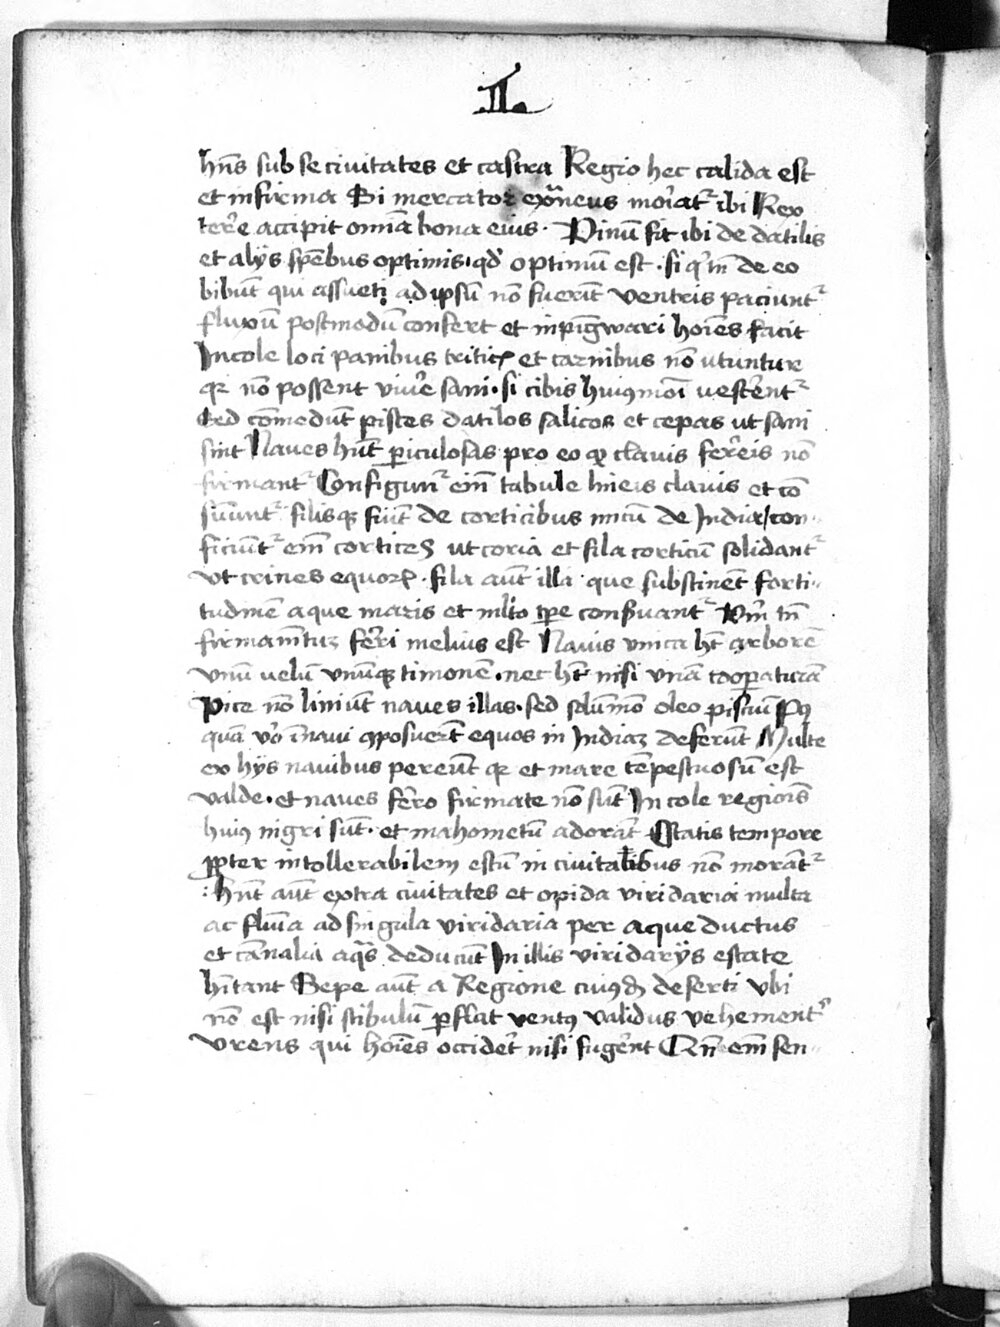 II.
hn̄s sub se ciuitates et castra Regio hec calida est
et infirma Si mercator ext̄neus moriat᷑ ibi Rex
terr̄e accipit om̄ia bona eius. Vinū fit ibi de datilis
et alijs sp̄ebus optimis. qd̓ optimū est. si q̓ tn̄ de eo
bibūt qui assueti ad ipsū nō fuerūt ventris paciunt᷑
fluxū postmodū confert et inpīgwari hoīes facit
Incole loci panibus tritiꝯ et carnibus nō vtuntur
qr nō possent viuer̄e sani. si cibis huiꝯmōi vescerent᷑
Sed cōmedūt pisces datilos salicos et cepas ut sani
sint Naues hn̄t periculosas pro eo qꝫ clauis ferreis nō
firmant᷑ Configunt᷑ em̄ tabule lineis clauis et cō
suūnt᷑ filisqꝫ fiūt de corticibus nucū de India/con-
ficiūnt᷑ em̄ cortices ut coria et fila corticū solidant᷑
vt crines equoꝝ. fila aūt illa que substinēt forti-
tudinē aque maris et ml̄to tp̄e conseruant᷑ Vm̄ tn̄
firmamētuꝫ ferri melius est Nauis vnica hēt arborē
vnū uelū vnūqꝫ timonē. nec hēt nisi vnā cooperaturā
Pice nō liniūt naues illas. sed solūmō oleo pisciū Posꝯ
quā v̊o ī naui ꝯposuerūt equos in Indiaꝫ deferūt Multe
ex hijs nauibus pereūt qr et mare tēpestuosū est
valde. et naues ferro firmate nō sūt Incole regionis
huiꝯ nigri sūt. et mahometū adorāt Estatis tempore
ꝓpter intollerabilem estū in ciuitatibus nō morāt᷑
hn̄t aūt extra ciuitates et opida viridaria multa
ac flumīa ad singula viridaria per aque ductus
et cānalia aq̄s deducūt In illis viridarijs estate
hītant Sepe aūt a Regione cuiꝯdā deserti vbi
nō est nisi stibulū perflat ventꝯ validus vehement᷑
vrens qui hoīes occideret nisi fugerēnt Qn̄ em̄ sen-